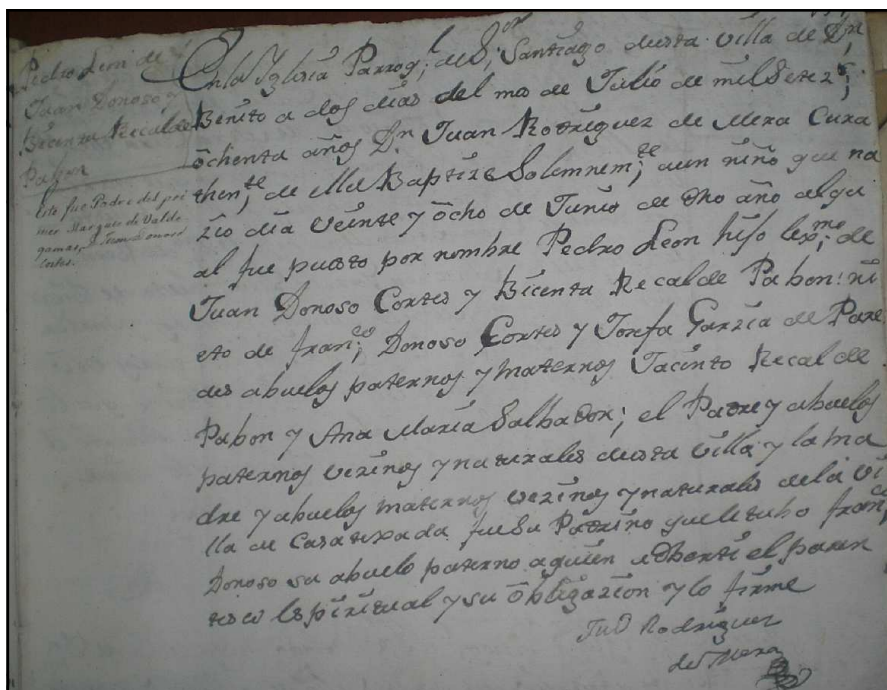 Pedro Leon de
Juan Donoso y
Bicenta Recalde
Pabon
Este fue Padre del pri
mer Marques de Valde
gamas, D. Juan Donoso
Cortes.
En la Yglesia Parroq.l de S.or Santiago desta villa de Dn
Benito a dos dias del mes de Julio de mil Setez.s
ōchenta años Dn Juan Rodriguez de Mera Cura
then.te de ella Baptize Solemnem.te a un niño que na
zio dia veinte y ōcho de Junio de dho año al qu
al fue puesto por nombre Pedro Leon hijo lex.mo de
Juan Donoso Cortes y Bicenta Recalde Pabon: ni
eto de Fran.co Donoso Cortes y Josefa Garzia de Pare
des abuelos paternos y maternos Jacinto Recalde
Pabon y Ana Maria Salbador; el Padre y abuelos
paternos vezinos y naturales desta villa y la ma
dre y abuelos maternos vezinos y naturales de la vi
lla de Casatexada fue su Padrino que le tubo Fran.co
Donoso su abuelo paterno a quien adberti el paren
tesco espiritual y su ōbligazion y lo firme
Jun Rodriguez
de Mera